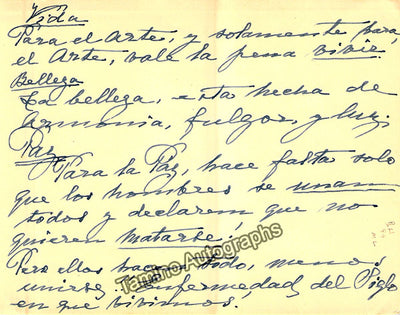 Vida
Para el Arte, y solamente para,
el Arte, vale la pena vivir
Belleza
La belleza, esta hecha de
armonia, fulgor, y luz.
Paz
Para la Paz, hace falta solo
que los hombres se unan
todos y declaren que no
quieren matarse.
Pero ellos hacen todo, menos
unirse. enfermedad del Siglo
en que vivimos.
Tamino Autographs